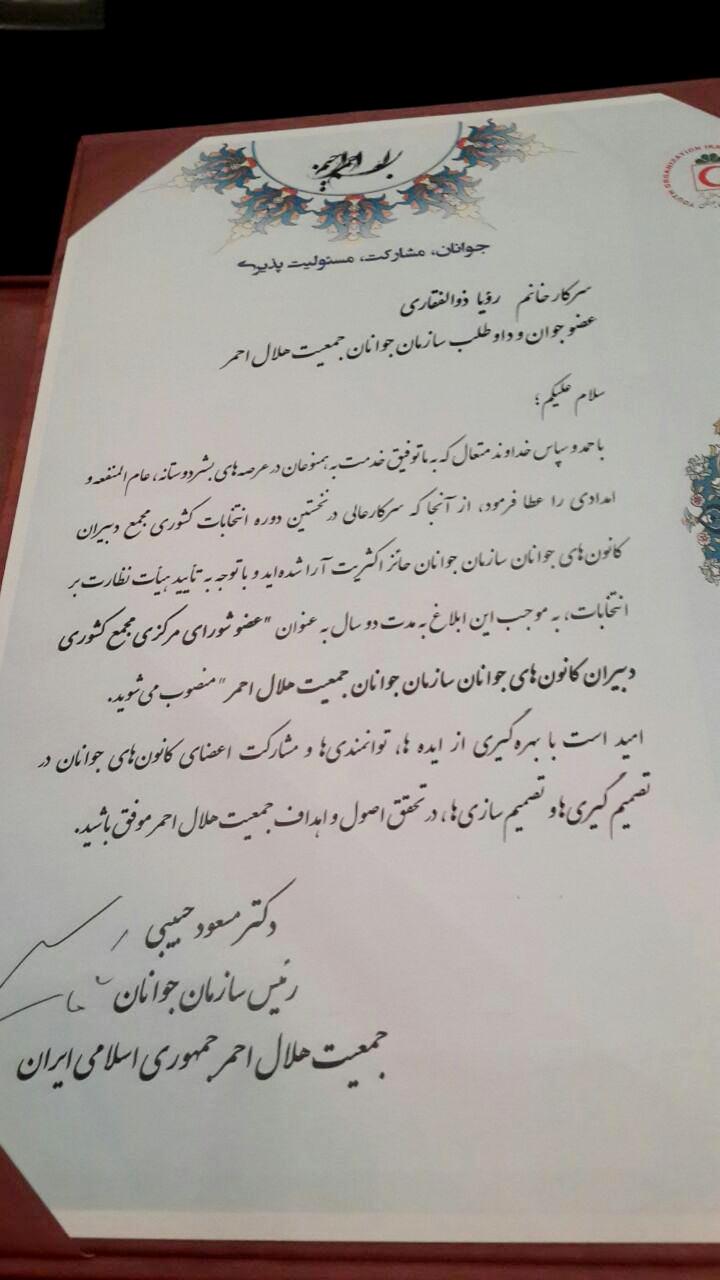 بسم الله الرحمن الرحیم
YOUTH ORGANIZATION IRA
جوانان، مشارکت، مسئولیت پذیری
سرکار خانم رؤیا ذوالفقاری
عضو جوان و داوطلب سازمان جوانان جمعیت هلال احمر
سلام علیکم؛
با حمد و سپاس خداوند متعال که به ما توفیق خدمت به همنوعان در عرصه های بشردوستانه، عام المنفعه و
امدادی را عطا فرمود، از آنجا که سرکارعالی در نخستین دوره انتخابات کشوری مجمع دبیران
کانون های جوانان سازمان جوانان حائز اکثریت آرا شده اید و با توجه به تأیید هیأت نظارت بر
انتخابات، به موجب این ابلاغ به مدت دو سال به عنوان "عضو شورای مرکزی مجمع کشوری
دبیران کانون های جوانان سازمان جوانان جمعیت هلال احمر" منصوب می شوید.
امید است با بهره گیری از ایده ها، توانمندی ها و مشارکت اعضای کانون های جوانان در
تصمیم گیری ها و تصمیم سازی ها، در تحقق اصول و اهداف جمعیت هلال احمر موفق باشید.
دکتر مسعود حبیبی
رئیس سازمان جوانان
جمعیت هلال احمر جمهوری اسلامی ایران